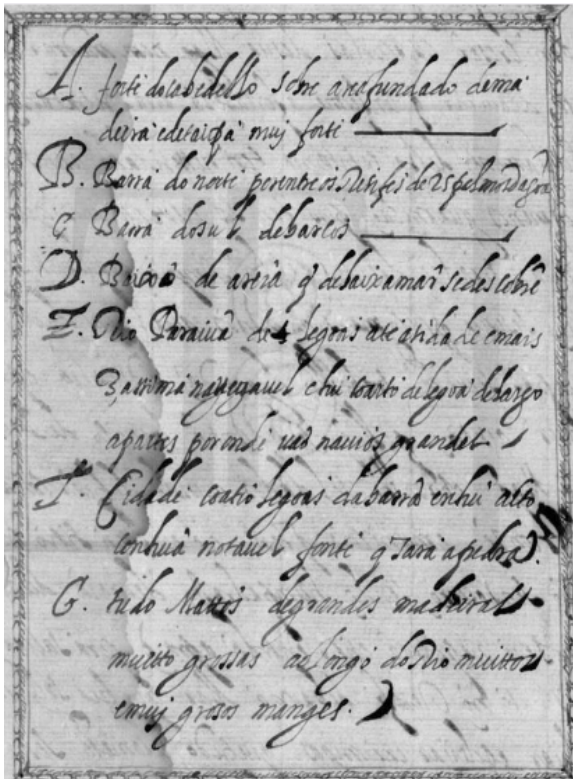 A. forte do cabedello sobre area fundado de ma
deira e de taipa muj forte
B. Barra do norte per entre os Resifes de 25 palmos dagoa
C Barra do sul de barcos
D. Baixos de areia q̃ de baixa mar se descobrẽ
E. Rio Paraiva de 4 legoas ate a cidade e mais
3 assima navegavel e hũ coarto de legoa de largo
a partes por onde vaõ navios grandes
F. Cidade coatro legoas da barra en hũ alto
con huã notavel fonte q̃
G. tudo Mattos de grandes madeiras
muito grossas ao longo do Rio muittos
e muj grosos manges.